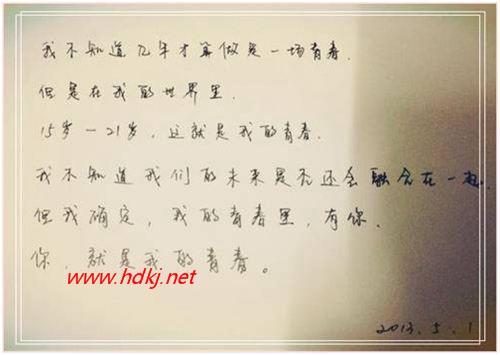 我不知道几年才算做是一场青春.
但是在我的世界里.
15岁一21岁,这就是我的青春.
我不知道我们的未来是否还会融合在一起.
但我确定,我的青春里,有你.
你,就是我的青春。
www.hdkj.net
2013.5.1